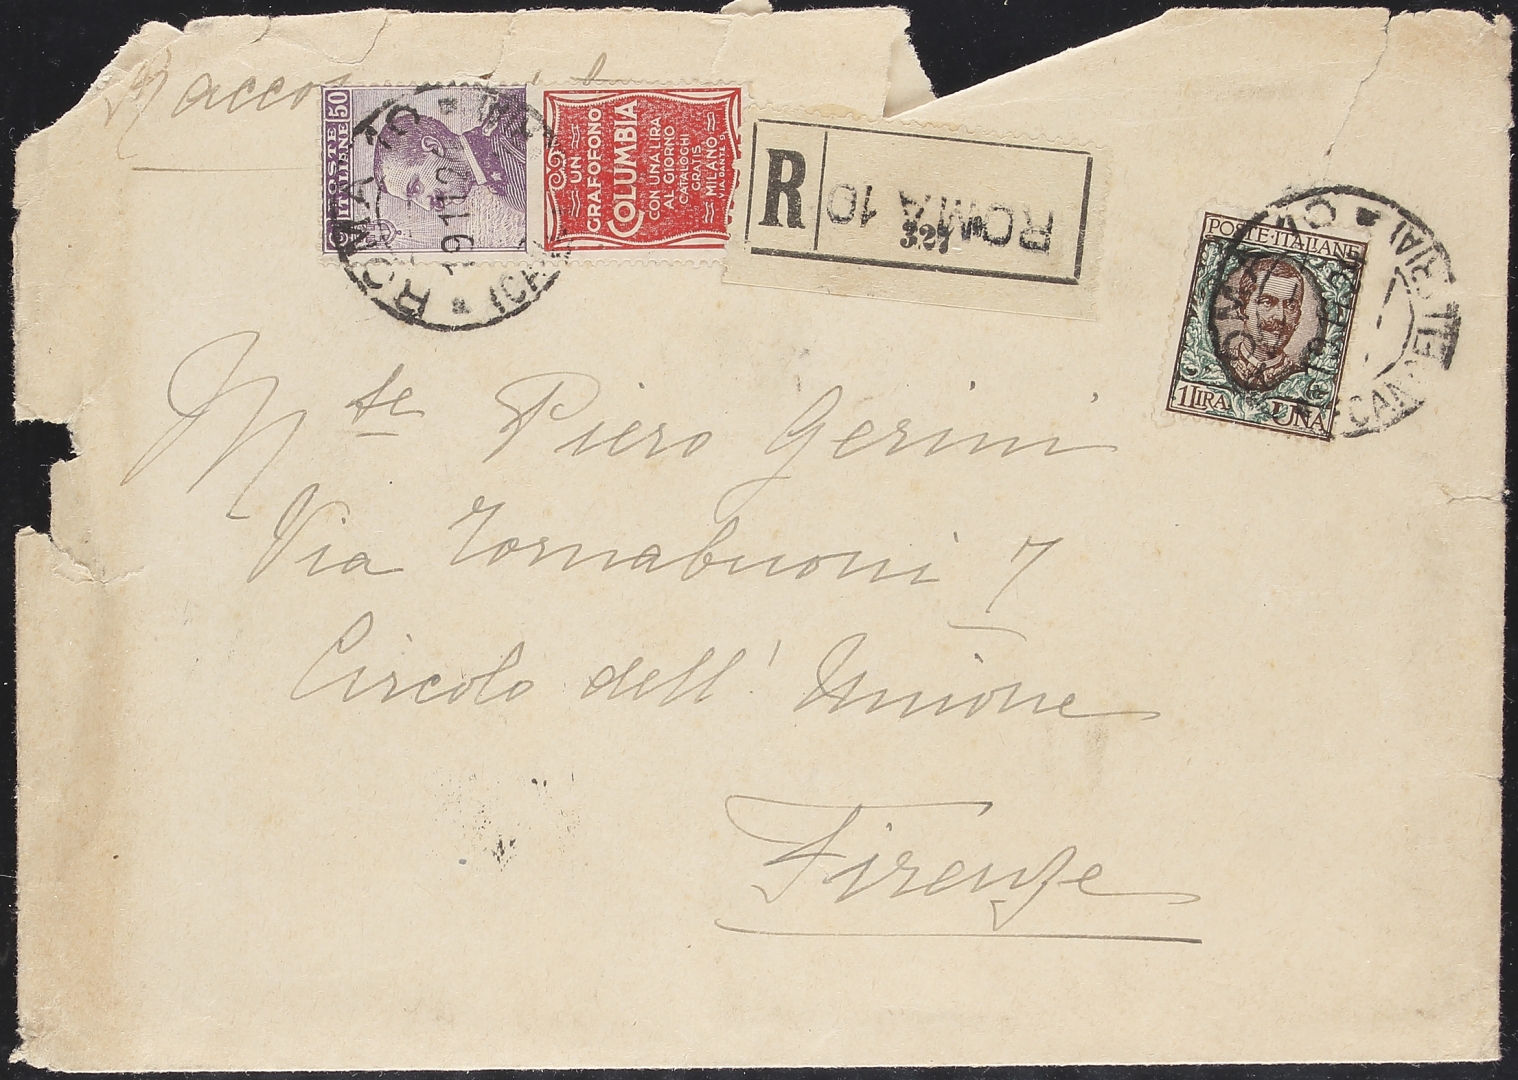 POSTE ITALIANE 50
UN
GRAFOFONO
COLUMBIA
CON UNA LIRA
AL GIORNO
CATALOGHI
GRATIS
MILANO
VIA DANTE 9
R
ROMA 10
327
POSTE·ITALIANE
1 LIRA UNA
ROMA 10
M.te Piero Gerini
Via Tornabuoni 7
Circolo dell' Unione
Firenze